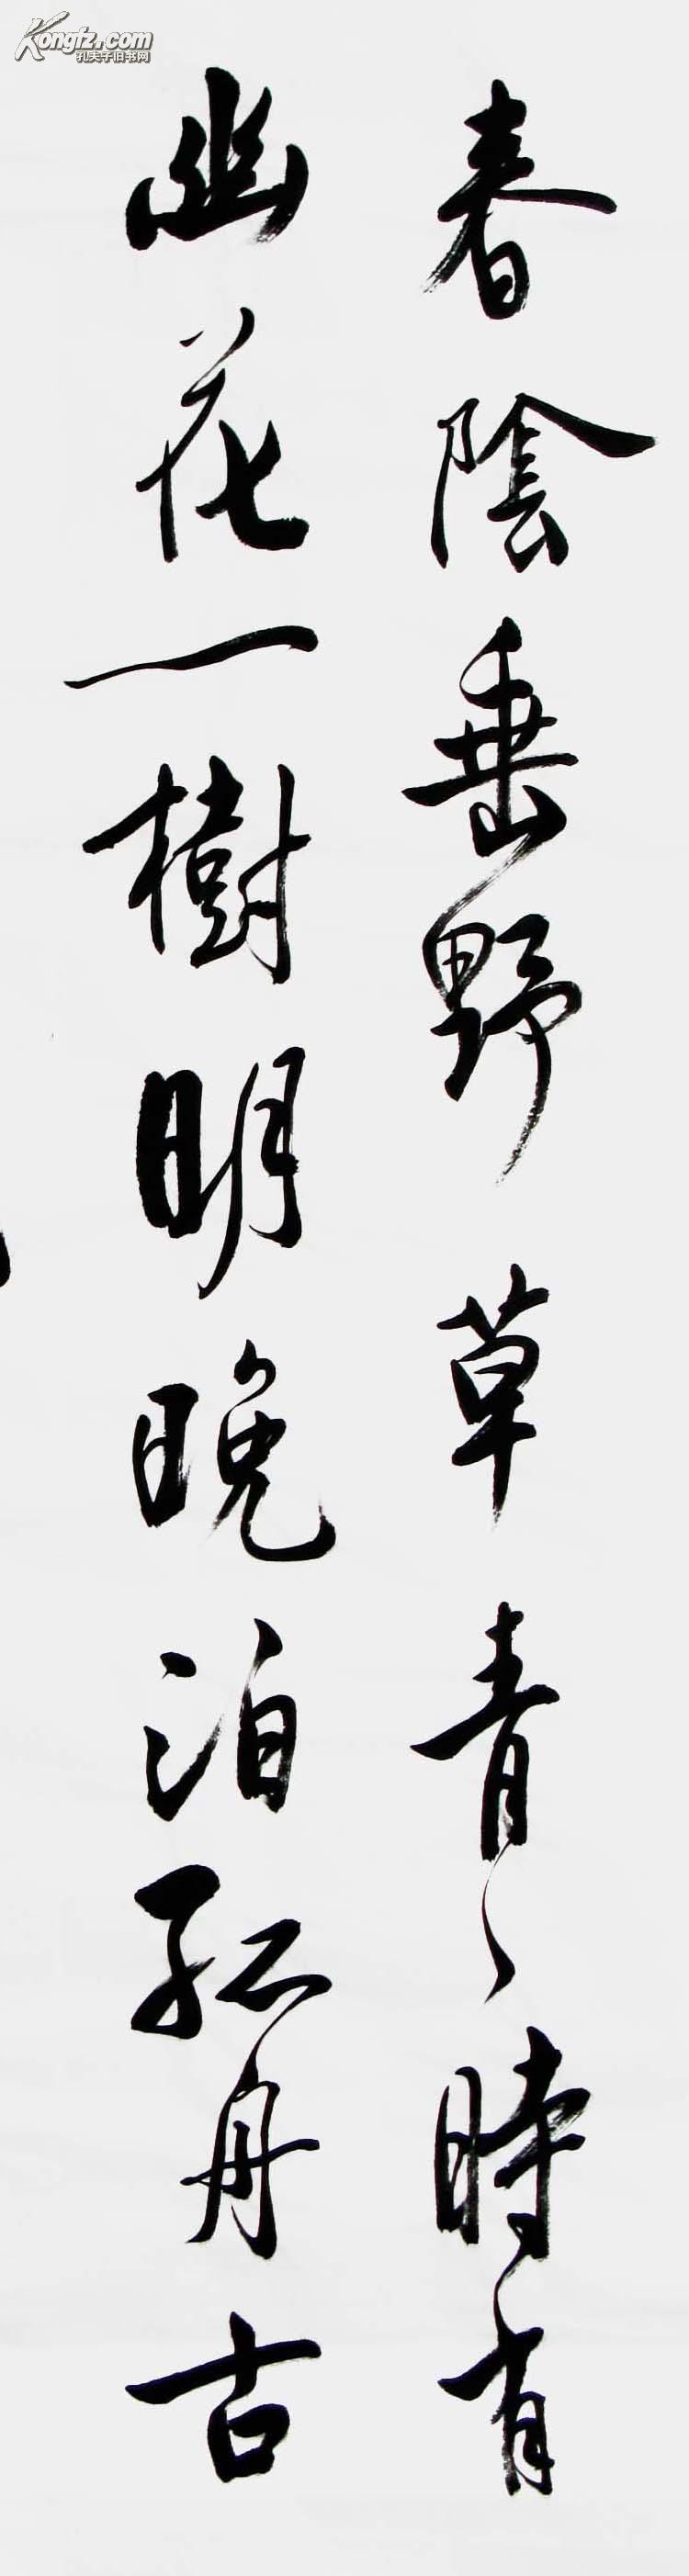 春陰垂野草青〻時有
幽花一樹明晚泊孤舟古
Kongfz.com
孔夫子旧书网